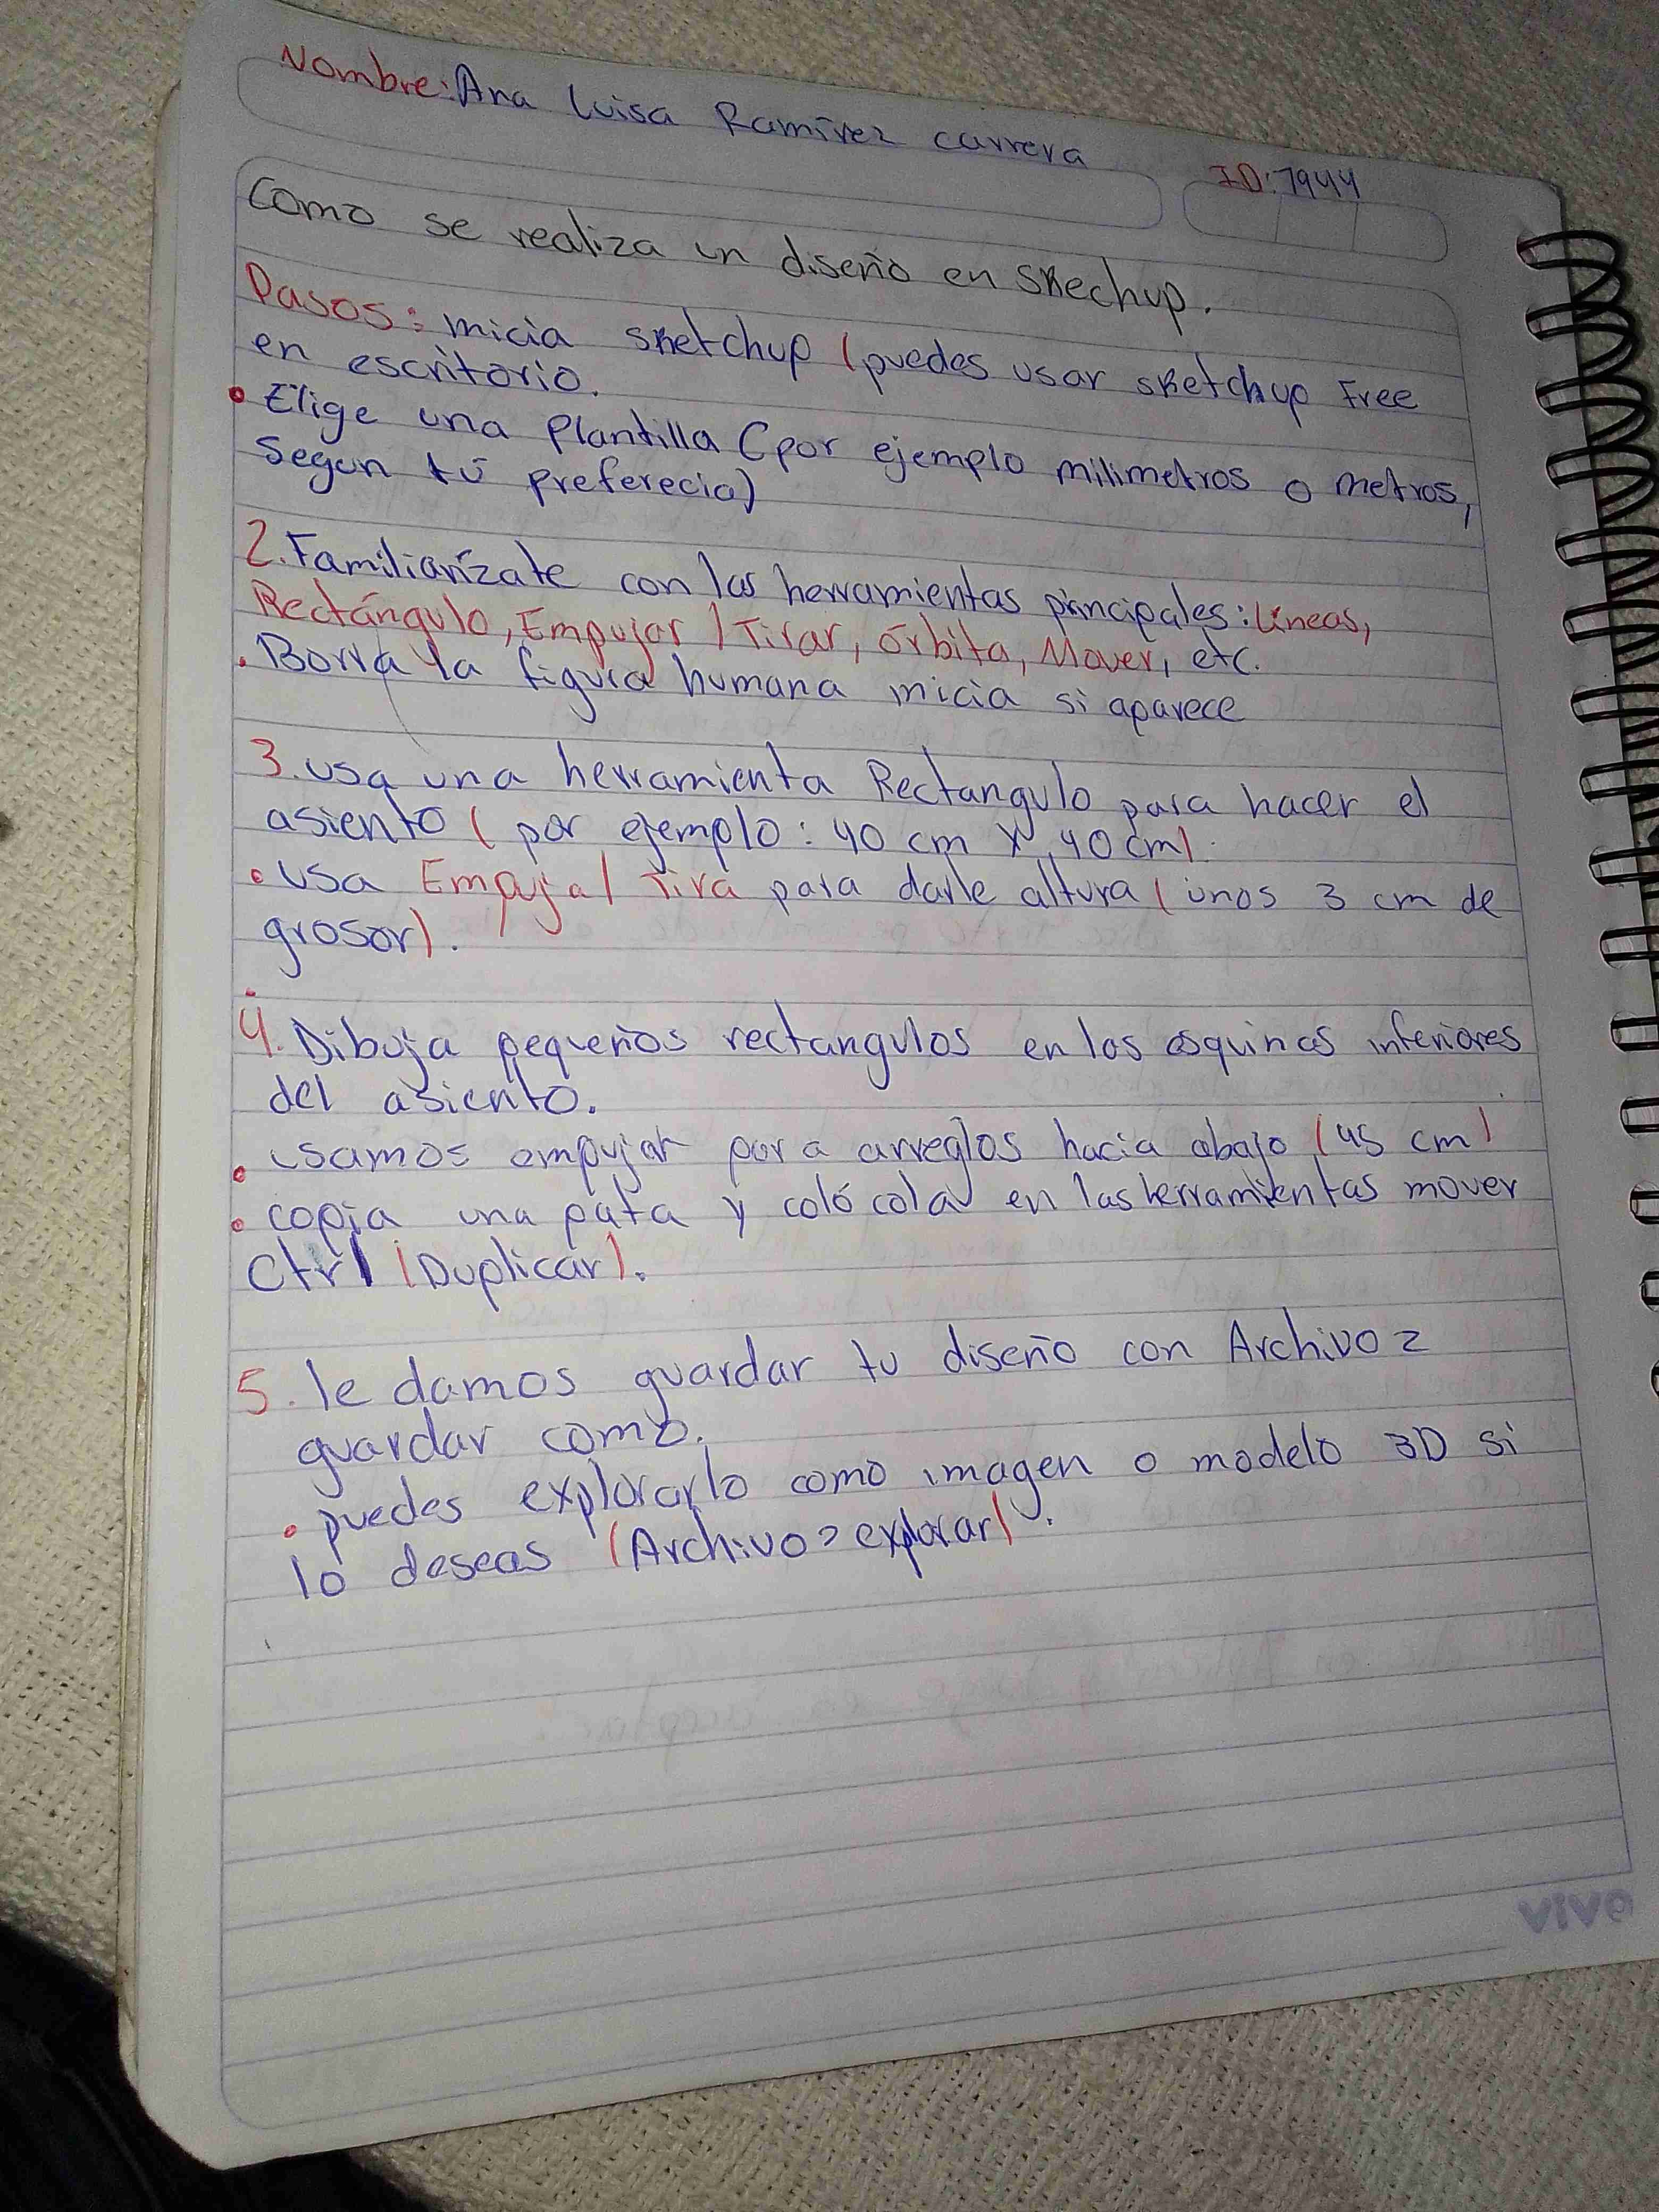 Nombre: Ana Luisa Ramírez carrera
ID: 7944
Como se realiza un diseño en Skechup.
Pasos: inicia sketchup (puedes usar sketchup Free
en escritorio.
• Elige una Plantilla (por ejemplo milimetros o metros,
Segun tú preferecia)
2. Familiarízate con las herramientas principales: Líneas,
Rectángulo, Empujar / Tirar, órbita, Mover, etc.
. Borra la figura humana inicia si aparece
3. usa una herramienta Rectangulo para hacer el
asiento ( por ejemplo: 40 cm x 40 cm).
• usa Empuja/ Tira para darle altura ( unos 3 cm de
grosor).
4. Dibuja pequeños rectangulos en las esquinas inferiores
del asiento.
• usamos empujar para arreglos hacia abajo (45 cm)
• copia una pata y colócola en las herramientas mover
Ctrl (Duplicar).
5. le damos guardar tu diseño con Archivo >
guardar como.
• puedes explorarlo como imagen o modelo 3D si
lo deseas (Archivo > explorar).
vivo